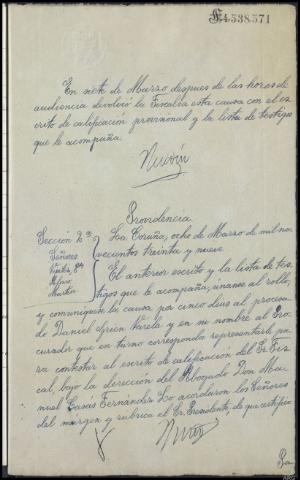 E4538571
En siete de Marzo despues de las horas de
audiencia devolvió la Fiscalía esta causa con el es
crito de calificación provisional y la lista de testigos
que le acompaña.
Providencia
Sección 2ª
Señores
La Coruña, ocho de Marzo de mil nov
vecientos treinta y nueve
El anterior escrito y la lista de tes
tigos que le acompaña, unanse al rollo,
y comuniquese la causa por cinco dias al procesa
do Daniel Varela y en su nombre al Pro
curador que en turno corresponda representarle pa
ra contestar al escrito de calificación del Sr. Fis
cal, bajo la dirección del Abogado Don Ma
nuel Casás Fernández Lo acordaron los Señores
del margen y rubrica el Sr. Presidente, de que certifico